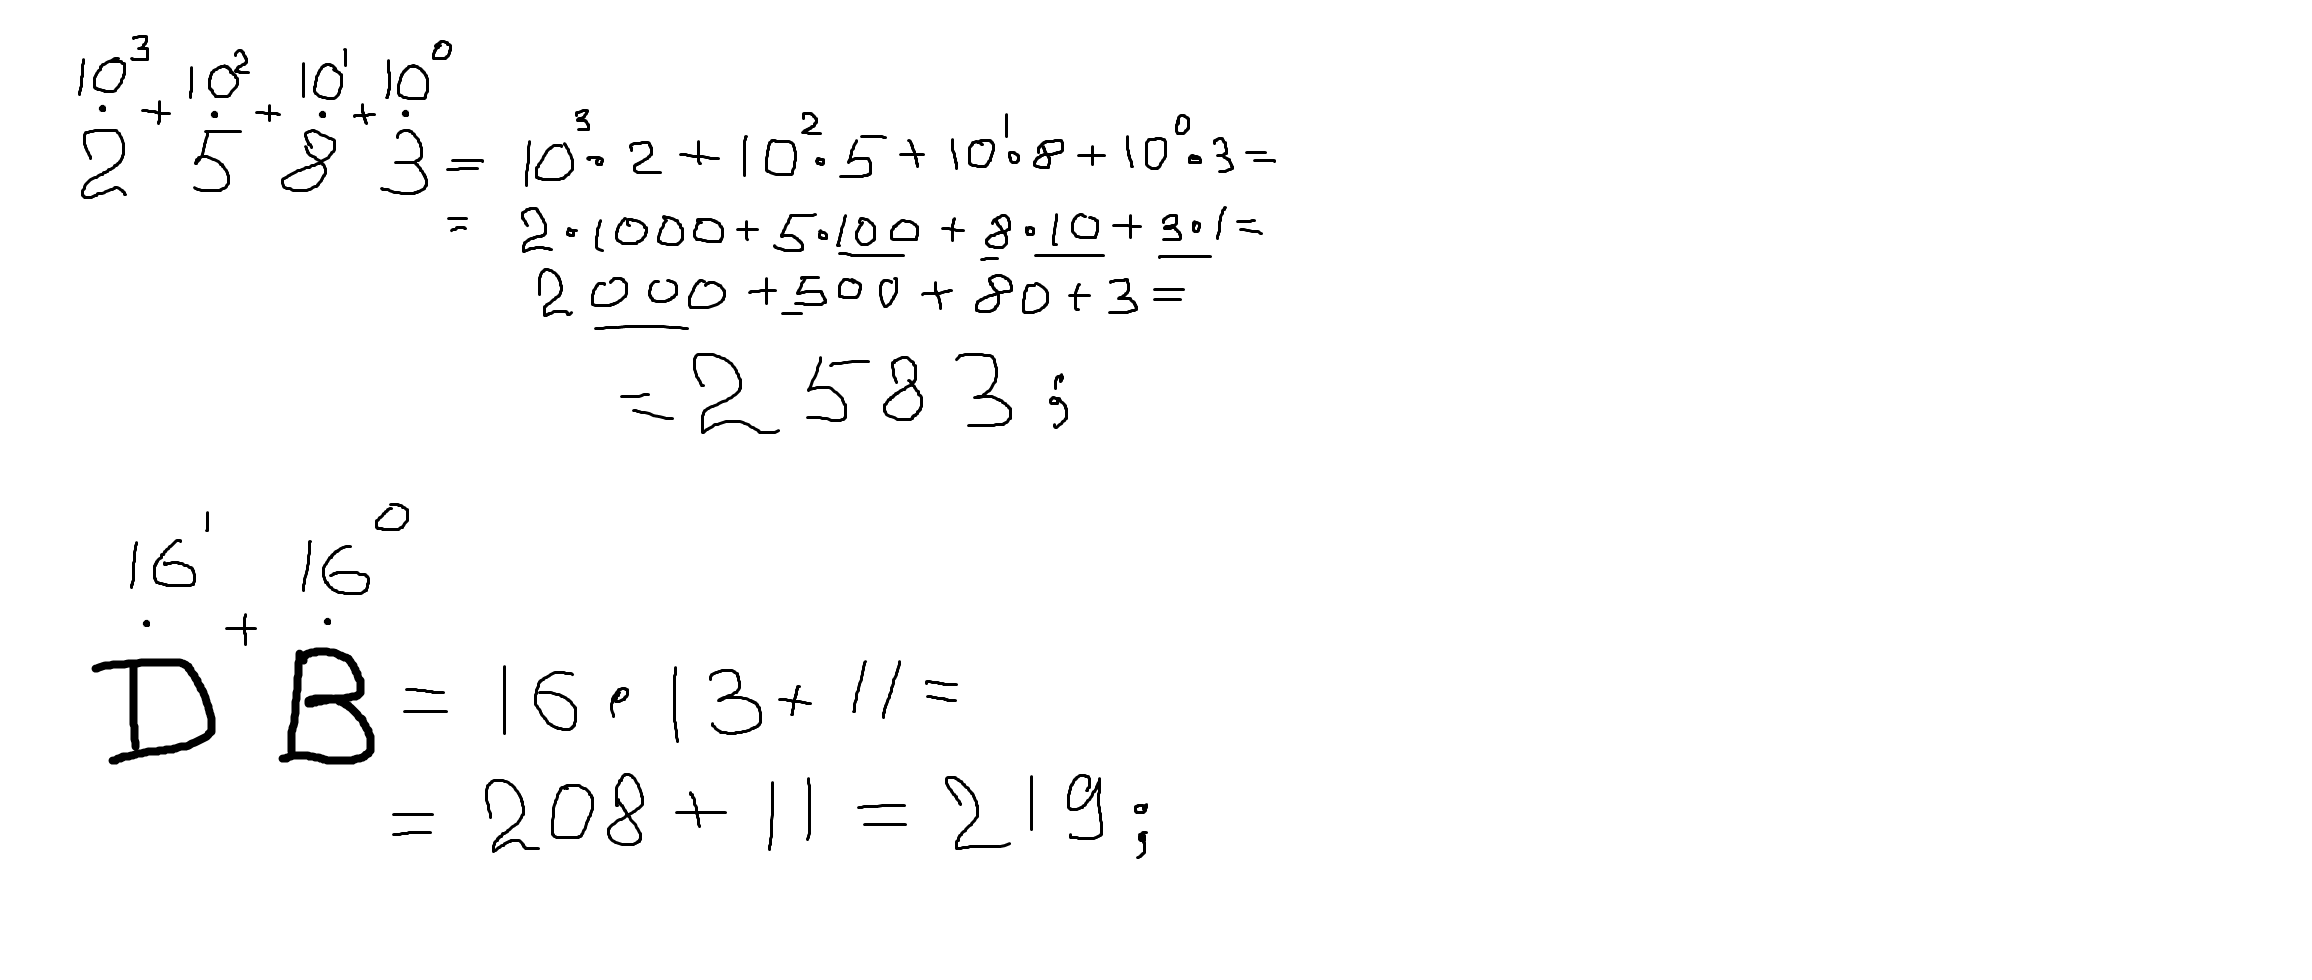 10³ + 10² + 10¹ + 10⁰
2 5 8 3 = 10³ · 2 + 10² · 5 + 10¹ · 8 + 10⁰ · 3 =
= 2 · 1000 + 5 · 100 + 8 · 10 + 3 · 1 =
2000 + 500 + 80 + 3 =
= 2583;
16¹ + 16⁰
D B = 16 · 13 + 11 =
= 208 + 11 = 219;